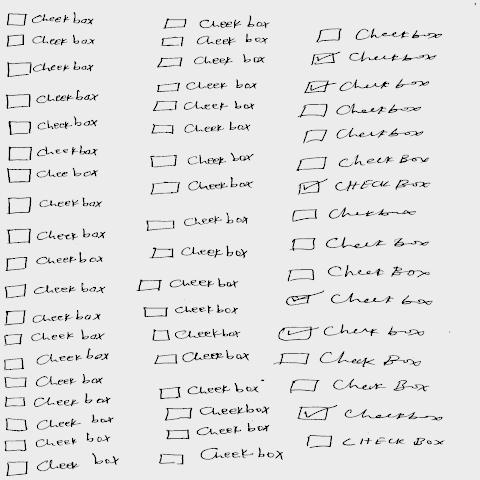 Check box
Check box
Check box
Check box
Check box
Checkbox
Check box
Check box
Check box
Check box
Check box
Check box
Check box
Check box
Check box
Check box
Check box
Check box
Check box
Check box
Check box
Check box
Check box
Check box
Check box
Check box
Check box
Check box
Check box
Check box
Check box
Check box
Check box
Check box
Checkbox
Check box
Check box
Checkbox
Check box
Check box
Check box
Check box
Check Box
CHECK BOX
Checkbox
Check box
Check Box
Check box
Check box
Check Box
Check Box
Checkbox
CHECK BOX